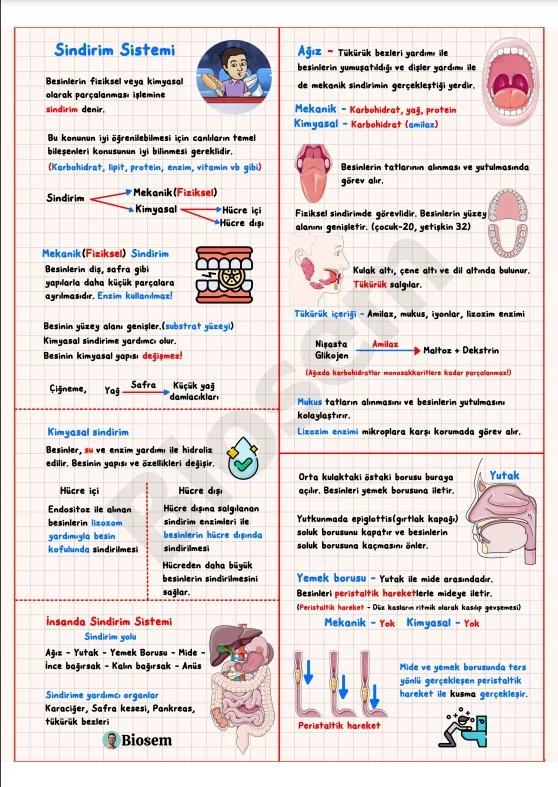 Sindirim Sistemi
Besinlerin fiziksel veya kimyasal
olarak parçalanması işlemine
sindirim denir.
Bu konunun iyi öğrenilebilmesi için canlıların temel
bileşenleri konusunun iyi bilinmesi gereklidir.
(Karbohidrat, lipit, protein, enzim, vitamin vb gibi)
Sindirim
Mekanik(Fiziksel)
Kimyasal
Hücre içi
Hücre dışı
Mekanik(Fiziksel) Sindirim
Besinlerin diş, safra gibi
yapılarla daha küçük parçalara
ayrılmasıdır. Enzim kullanılmaz!
Besinin yüzey alanı genişler.(substrat yüzeyi)
Kimyasal sindirime yardımcı olur.
Besinin kimyasal yapısı değişmez!
Çiğneme,
Yağ
Safra
Küçük yağ
damlacıkları
Kimyasal sindirim
Besinler, su ve enzim yardımı ile hidroliz
edilir. Besinin yapısı ve özellikleri değişir.
Hücre içi
Endositoz ile alınan
besinlerin lizozom
yardımıyla besin
kofulunda sindirilmesi
Hücre dışı
Hücre dışına salgılanan
sindirim enzimleri ile
besinlerin hücre dışında
sindirilmesi
Hücreden daha büyük
besinlerin sindirilmesini
sağlar.
İnsanda Sindirim Sistemi
Sindirim yolu
Ağız - Yutak - Yemek Borusu - Mide -
İnce bağırsak - Kalın bağırsak - Anüs
Sindirime yardımcı organlar
Karaciğer, Safra kesesi, Pankreas,
tükürük bezleri
Biosem
Ağız - Tükürük bezleri yardımı ile
besinlerin yumuşatıldığı ve dişler yardımı ile
de mekanik sindirimin gerçekleştiği yerdir.
Mekanik - Karbohidrat, yağ, protein
Kimyasal - Karbohidrat (amilaz)
Besinlerin tatlarının alınması ve yutulmasında
görev alır.
Fiziksel sindirimde görevlidir. Besinlerin yüzey
alanını genişletir. (çocuk-20, yetişkin 32)
Kulak altı, çene altı ve dil altında bulunur.
Tükürük salgılar.
Tükürük içeriği - Amilaz, mukus, iyonlar, lizozim enzimi
Nişasta
Glikojen
Amilaz
Maltoz + Dekstrin
(Ağızda karbohidratlar monosakkaritlere kadar parçalanmaz!)
Mukus tatların alınmasını ve besinlerin yutulmasını
kolaylaştırır.
Lizozim enzimi mikroplara karşı korumada görev alır.
Yutak
Orta kulaktaki östaki borusu buraya
açılır. Besinleri yemek borusuna iletir.
Yutkunmada epiglottis(gırtlak kapağı)
soluk borusunu kapatır ve besinlerin
soluk borusuna kaçmasını önler.
Yemek borusu - Yutak ile mide arasındadır.
Besinleri peristaltik hareketlerle mideye iletir.
(Peristaltik hareket - Düz kasların ritmik olarak kasılıp gevşemesi)
Mekanik - Yok Kimyasal - Yok
Peristaltik hareket
Mide ve yemek borusunda ters
yönlü gerçekleşen peristaltik
hareket ile kusma gerçekleşir.
Biosem